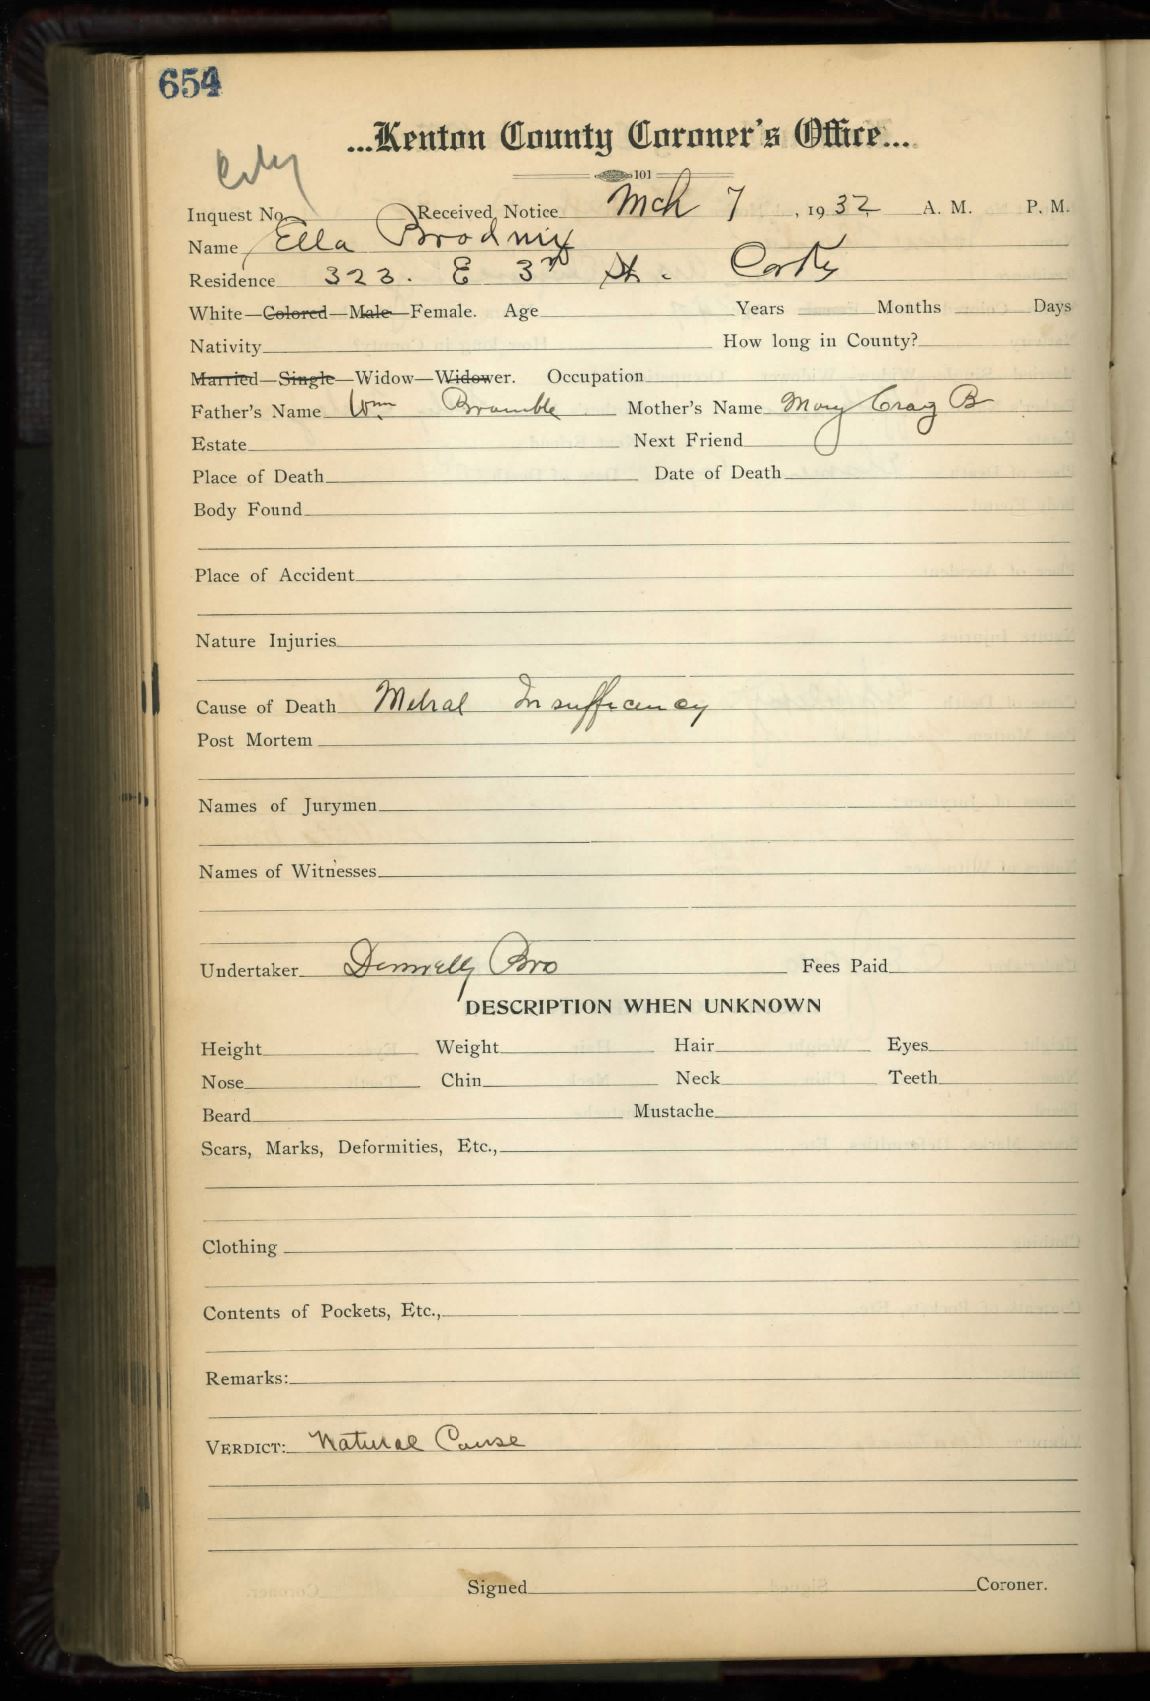 654
...Kenton County Coroner's Office...
101
City
Inquest No. Received Notice Mch 7, 1932 A. M. P. M.
Name Ella Brodnix
Residence 323. E 3rd St. 
White—Colored—Male—Female. Age Years Months Days
Nativity How long in County?
Married—Single—Widow—Widower. Occupation
Father's Name Wm Bramble Mother's Name Mary Craig B
Estate Next Friend
Place of Death Date of Death
Body Found
Place of Accident
Nature Injuries
Cause of Death Mitral Insufficiency
Post Mortem
Names of Jurymen
Names of Witnesses
Undertaker Donnelly Bro Fees Paid
DESCRIPTION WHEN UNKNOWN
Height Weight Hair Eyes
Nose Chin Neck Teeth
Beard Mustache
Scars, Marks, Deformities, Etc.,
Clothing
Contents of Pockets, Etc.,
Remarks:
VERDICT: Natural Cause
Signed Coroner.